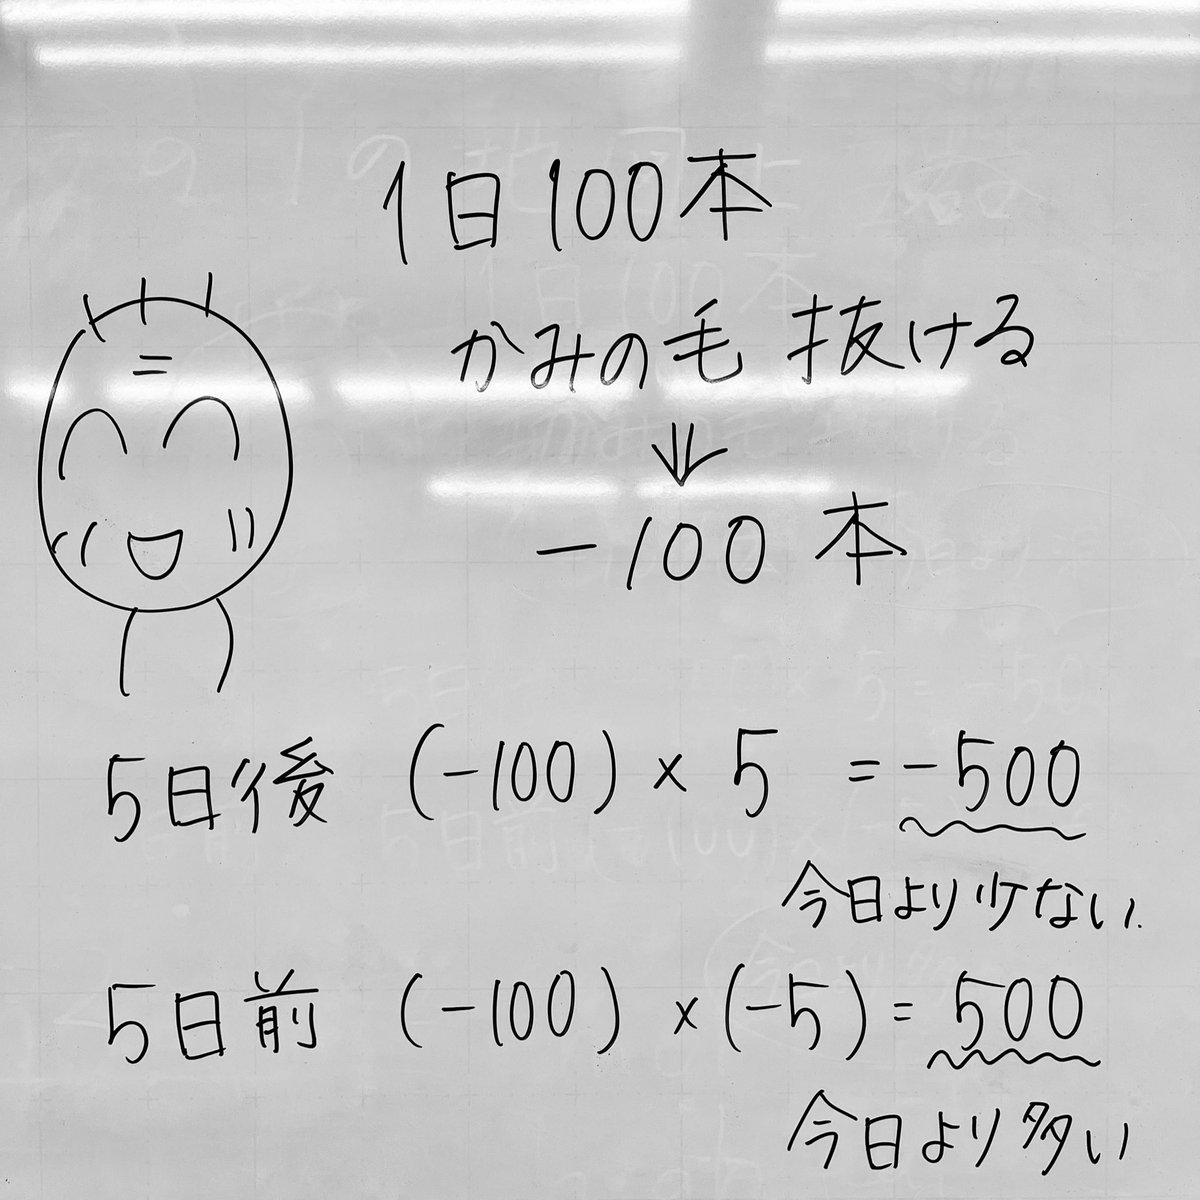 1日100本
かみの毛 抜ける
⇓
-100 本
5日後 (-100) × 5 = -500
今日より少ない.
5日前 (-100) × (-5) = 500
今日より多い